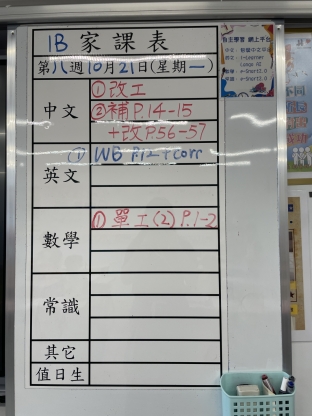 1B 家課表
第八週10月21日(星期一)
中文 ①改工
②補 P.14-15
+改 P.56-57
英文 ① WB P.12 + Corr
數學 ① 單工(2) P.1-2
常識
其它
值日生
自主學習 網上平台
不同